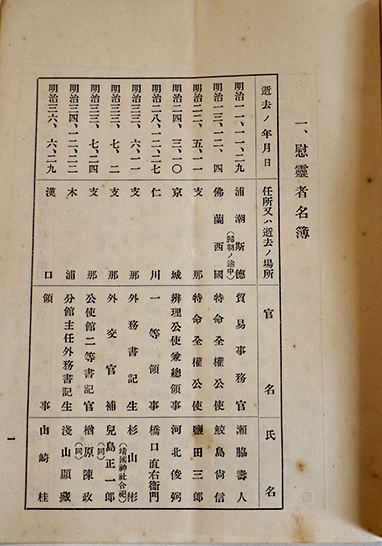 一、慰靈者名簿
逝去ノ年月日 任所又ハ逝去ノ場所 官名 氏名
明治一一、一一、二九 浦潮斯德(歸朝ノ途中) 貿易事務官 瀨脇壽人
明治一三、一二、四 佛蘭西國 特命全權公使 鮫島尙信
明治二二、五、一一 支那 特命全權公使 鹽田三郎
明治二四、三、一〇 京城 辨理公使兼總領事 河北俊弼
明治二八、一二、二七 仁川 一等領事 橋口直右衛門
明治三三、六、一一 支那 外務書記生 杉山彬(靖國神社合祀)
明治三三、七、二 支那 外交官補 兒島正一郎(同)
明治三三、七、二四 支那 公使館二等書記官 楢原陳政(同)
明治三四、二、二二 木浦 分館主任外務書記生 淺山顯藏
明治三六、六、二九 漢口 領事 山崎桂
一